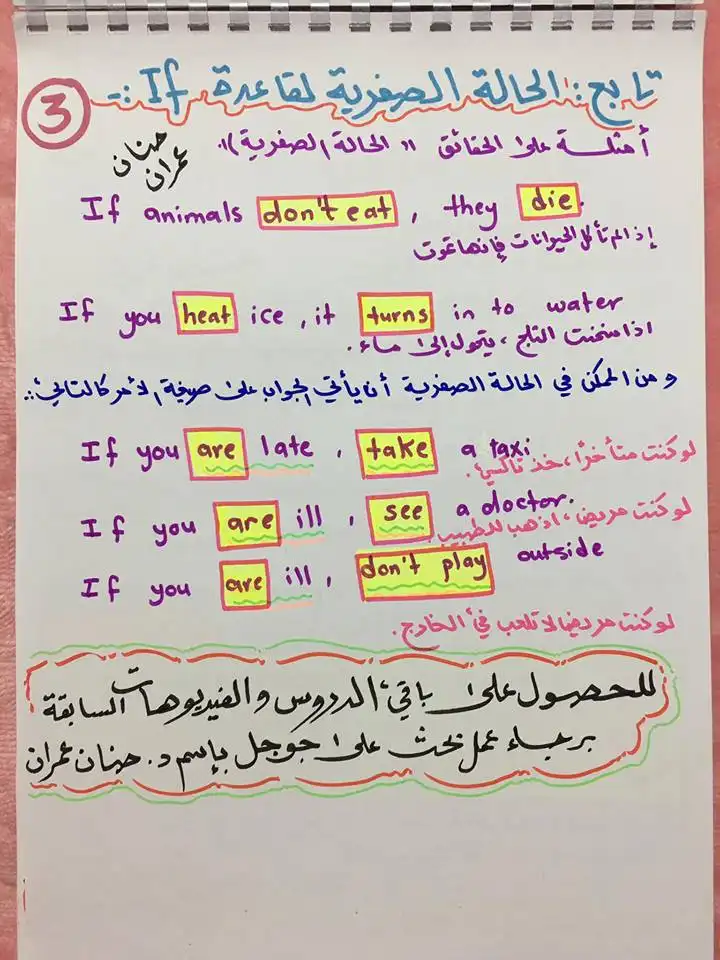 3
تابع: الحالة الصفرية لقاعدة If :-
أمثلة على الحقائق "الحالة الصفرية".
حنان
عمران
If animals don't eat , they die.
إذا لم تأكل الحيوانات فإنها تموت
If you heat ice , it turns in to water
اذا سخنت الثلج ، يتحول إلى ماء .
ومن الممكن في الحالة الصفرية أن يأتي الجواب على صيغة الأمر كالتالي :.
If you are late , take a taxi
لو كنت متأخرًا ، خذ تاكسي .
If you are ill , see a doctor.
لو كنت مريض ، اذهب للطبيب .
If you are ill , don't play outside
لو كنت مريضا لا تلعب في الخارج .
للحصول على باقي الدروس والفيديوهات السابقة
برجاء عمل بحث على جوجل بإسم د. حنان عمران